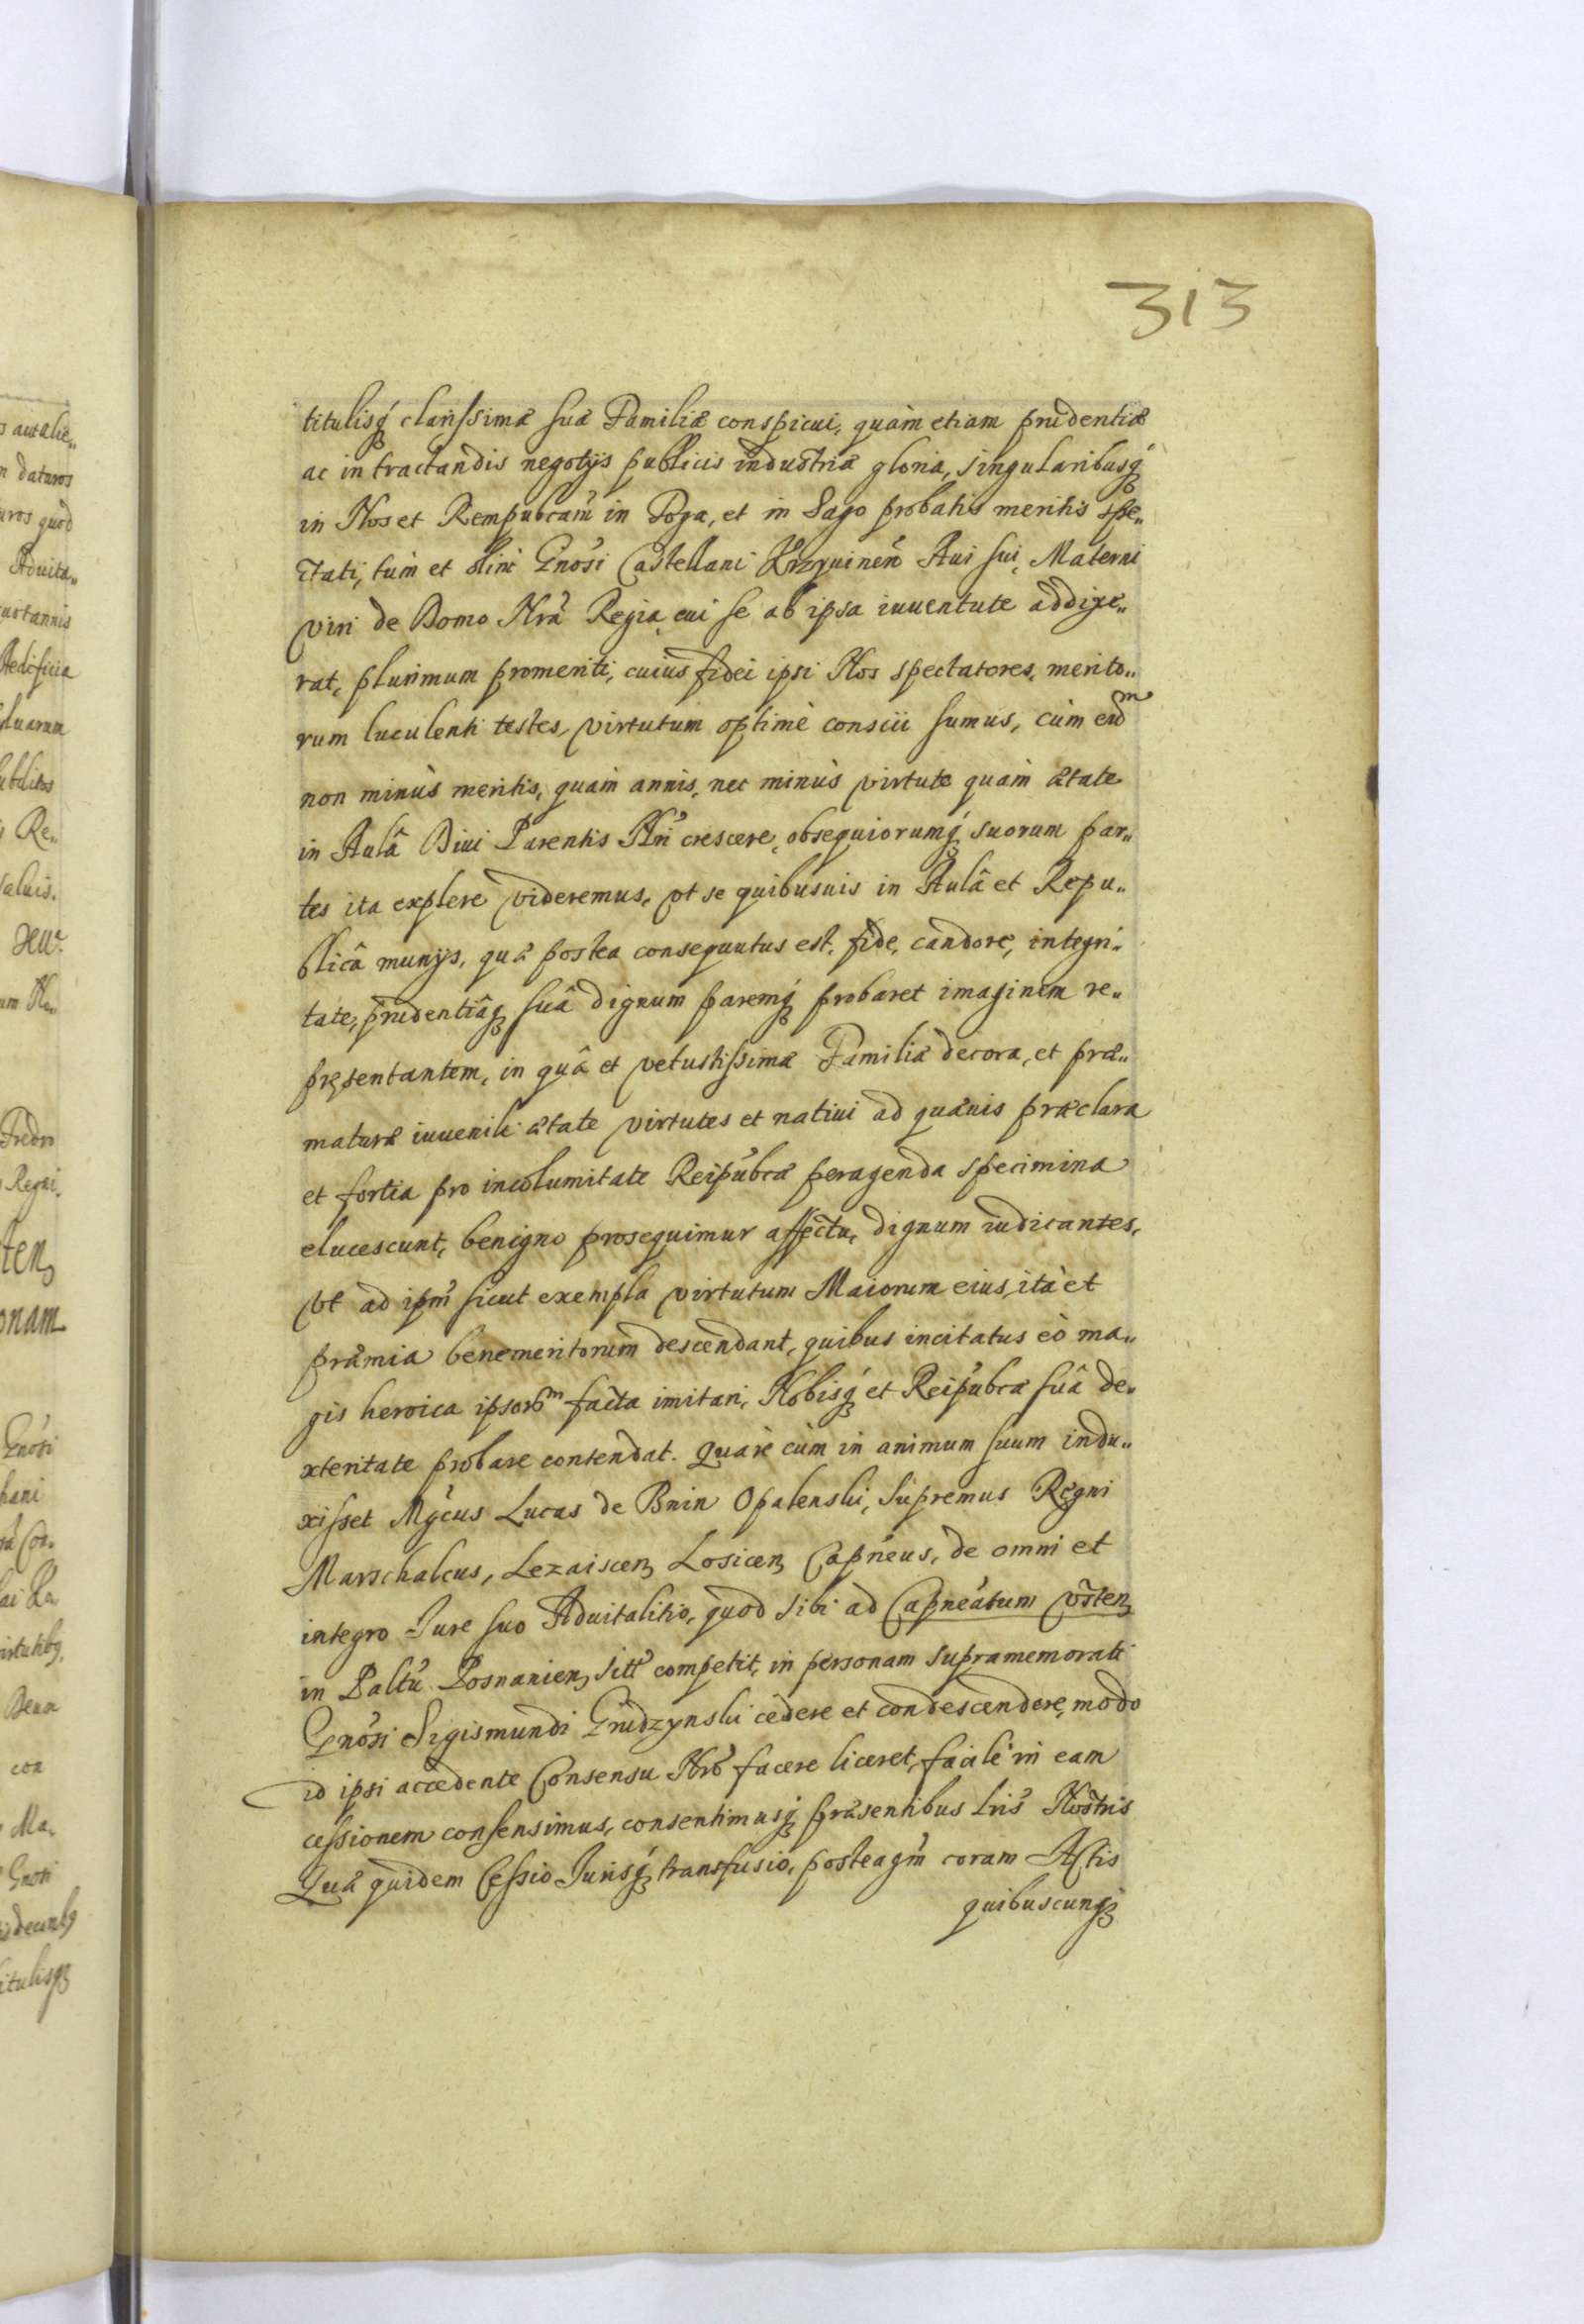 313
titulisq́ꝫ clarissimæ suæ Familiæ conspicui, quàm etiam prudentiæ
ac in tractandis negotijs publicis industriæ gloria, singularibusq́ꝫ
in Nos et Rempubcam̃ in Toga, et in Sago probatis meritis spe„
ctati, tùm et olim Gnõsi Castellani Krzyuineñ Aui sui, Materni
viri de Domo Nrã Regia, cui se ab ipsa iuuentute addixe„
rat, plurimum promeriti, cuius fidei ipsi Nos spectatores, merito„
rum luculenti testes, virtutum optimè conscii sumus, cùm eũd^m
non minùs meritis, quàm annis, nec minùs virtute quàm ætate
in Aulâ Diui Parentis Nrĩ crescere, obsequiorumq́ꝫ suorum par„
tes ita explere videremus, vt se quibusuis in Aulâ et Repu„
blicâ munijs, quæ postea consequutus est, fide, candore, integri„
tate, prudentiâqꝫ suâ dignum paremq́ꝫ probaret imaginem re„
præsentantem, in quâ et vetustissimæ Familiæ decora, et præ„
maturæ iuuenili ætate virtutes et natiui ad quæuis præclara
et fortia pro incolumitate Reipũbcæ peragenda specimina
elucescunt, benigno prosequimur affectu, dignum iudicantes,
vt ad ipm̃ sicut exempla virtutum Maiorum eius, ità et
præmia benemeritorum descendant, quibus incitatus eò ma„
gis heroica ipsor^m facta imitari, Nobisq́ꝫ et Reipũbcæ suâ de„
xteritate probare contendat. Quare cùm in animum suum indu„
xisset Mg̃cus Lucas de Bnin Opalenski, Supremus Regni
Marschalcus, Lezaiscenꝫ Losicenꝫ Capñeus, de omni et
integro Iure suo Aduitalitio, quod sibi ad Capneãtum Vstenꝫ
in Paltũ Posnanienꝫ sitt̃ competit, in personam supramemorati
Gnõsi Sigismundi Grudzynski cedere et condescendere, modo
id ipsi accedente Consensu Nrõ facere liceret, facilè in eam
cessionem consensimus, consentimusq́ꝫ præsentibus Lris̃ Nostris
Quæ quidem Cessio Iurisq́ꝫ transfusio, posteaqm̃ coram Actis
quibuscunq́ꝫ